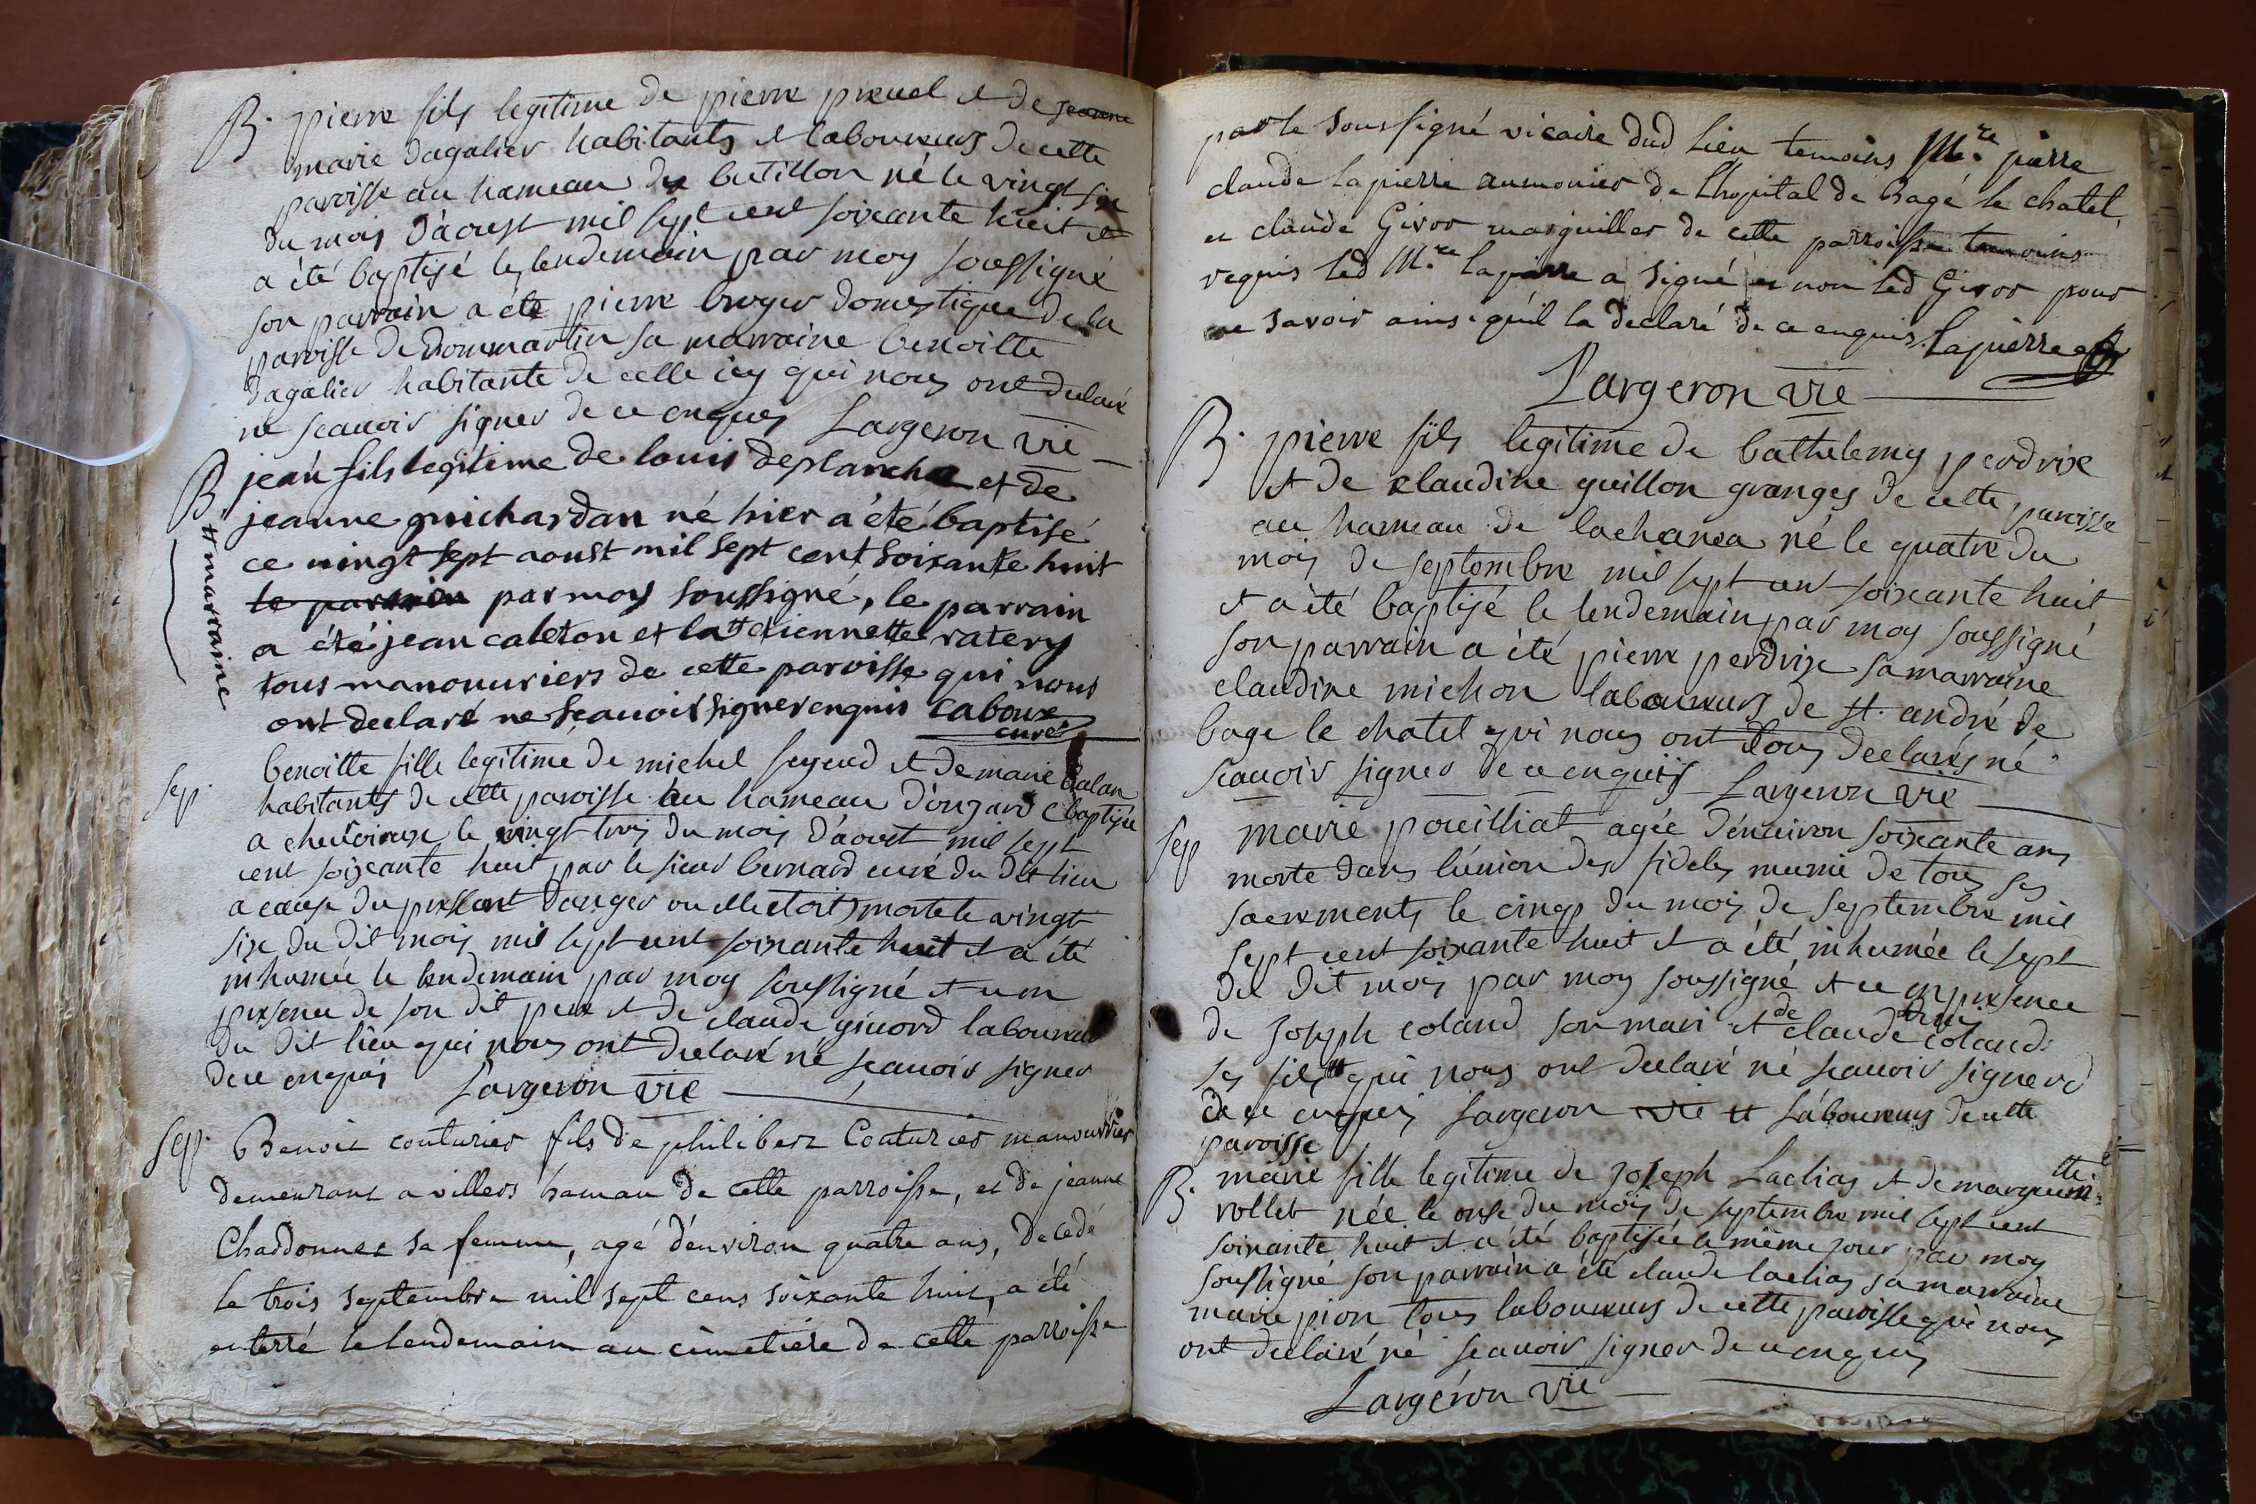 B. pierre fils legitime de pierre preuel et de jeanne
marie dagalier habitants et laboureurs de cette
paroisse au hameau de butillon né le vingt six
du mois d'àoust mil sept cent soixante huit et
a été baptisé le lendemain par moy soussigné
son parrain a été pierre broyer domestique de la
paroisse de dommartin sa marraine benoitte
dagalier habitante de celle icy qui nous ont declaré
ne scauoir signer de ce enquis Largeron vic
B. jean fils legitime de louis deplanche et de
jeanne guichardan né hier a été baptisé
ce vingt sept aoust mil sept cent soixante huit
le parrain par moy soussigné, le parrain
a été jean caleton et la # etiennette ratery
# marraine
tous manouuriers de cette paroisse qui nous
ont declaré ne scauoir signer enquis caboux
curé
sep. benoitte fille legitime de michel feyeud et de marie balan
habitants de cette paroisse au hameau d'onzard (baptisée
a cheuroux le vingt trois du mois d'àoust mil sept
cent soixante huit par le sieur bernard curé du dit lieu
a cause du pressant danger ou elle etoit) morte le vingt
six du dit mois mil sept cent soixante huit et a été
inhumée le lendemain par moy soussigné et en
presence de son dit pere et de claude giuord laboureur
du dit lieu qui nous ont declaré né scauoir signer
de ce enquis Largeron vic
sep. Benoit couturier fils de philibert Couturier manouvrier
demeurant a villers hamau de cette parroisse, et de jeanne
Chardonnet sa femme, agé d'environ quatre ans, decedé
le trois septembre mil sept cens soixante huit, a été
enterré le lendemain au cimetiére de cette parroisse
par le soussigné vicaire dud lieu temoins M.re pierre
claude lapierre aumonier de l'hopital de Bagé le chatel
et claude Giror marguiller de cette parroisse temoins
requis led M.re lapierre a signé et non led Giror pour
ne savoir ainsi qu'il la declaré de ce enquis. Lapierre
Largeron vic
B. pierre fils legitime de bathelemy perdrix
et de claudine guillon granges de cette paroisse
au hameau de lachanea né le quatre du
mois de septembre mil sept cent soixante huit
et a été baptisé le lendemain par moy soussigné
son parrain a été pierre perdrix sa marraine
claudine michon laboureurs de st. andré de
bage le chatel qui nous ont tous declarés né
scauoir signer de ce enquis Largeron vic
sep marie poüilliat agée d'énuiron soixante ans
morte dans l'union des fideles munie de tous ses
sacrements le cinq du mois de septembre mil
sept cent soixante huit et a été inhumée le sept
du dit mois par moy soussigné et ce en presence
de joseph coland son mari et de claude coland
ses fils # qui nous ont declaré né scauoir signer
de ce enquis Largeron vic # laboureurs de cette
paroisse
B. marie fille legitime de joseph Laclias et de margueritte
rollet née le onse du mois de septembre mil sept cent
soixante huit et a été baptisée le même jour par moy
soussigné son parrain a été claude laclias sa marraine
marie pion tous laboureurs de cette paroisse qui nous
ont declaré né scauoir signer de ce enquis
Largeron vic